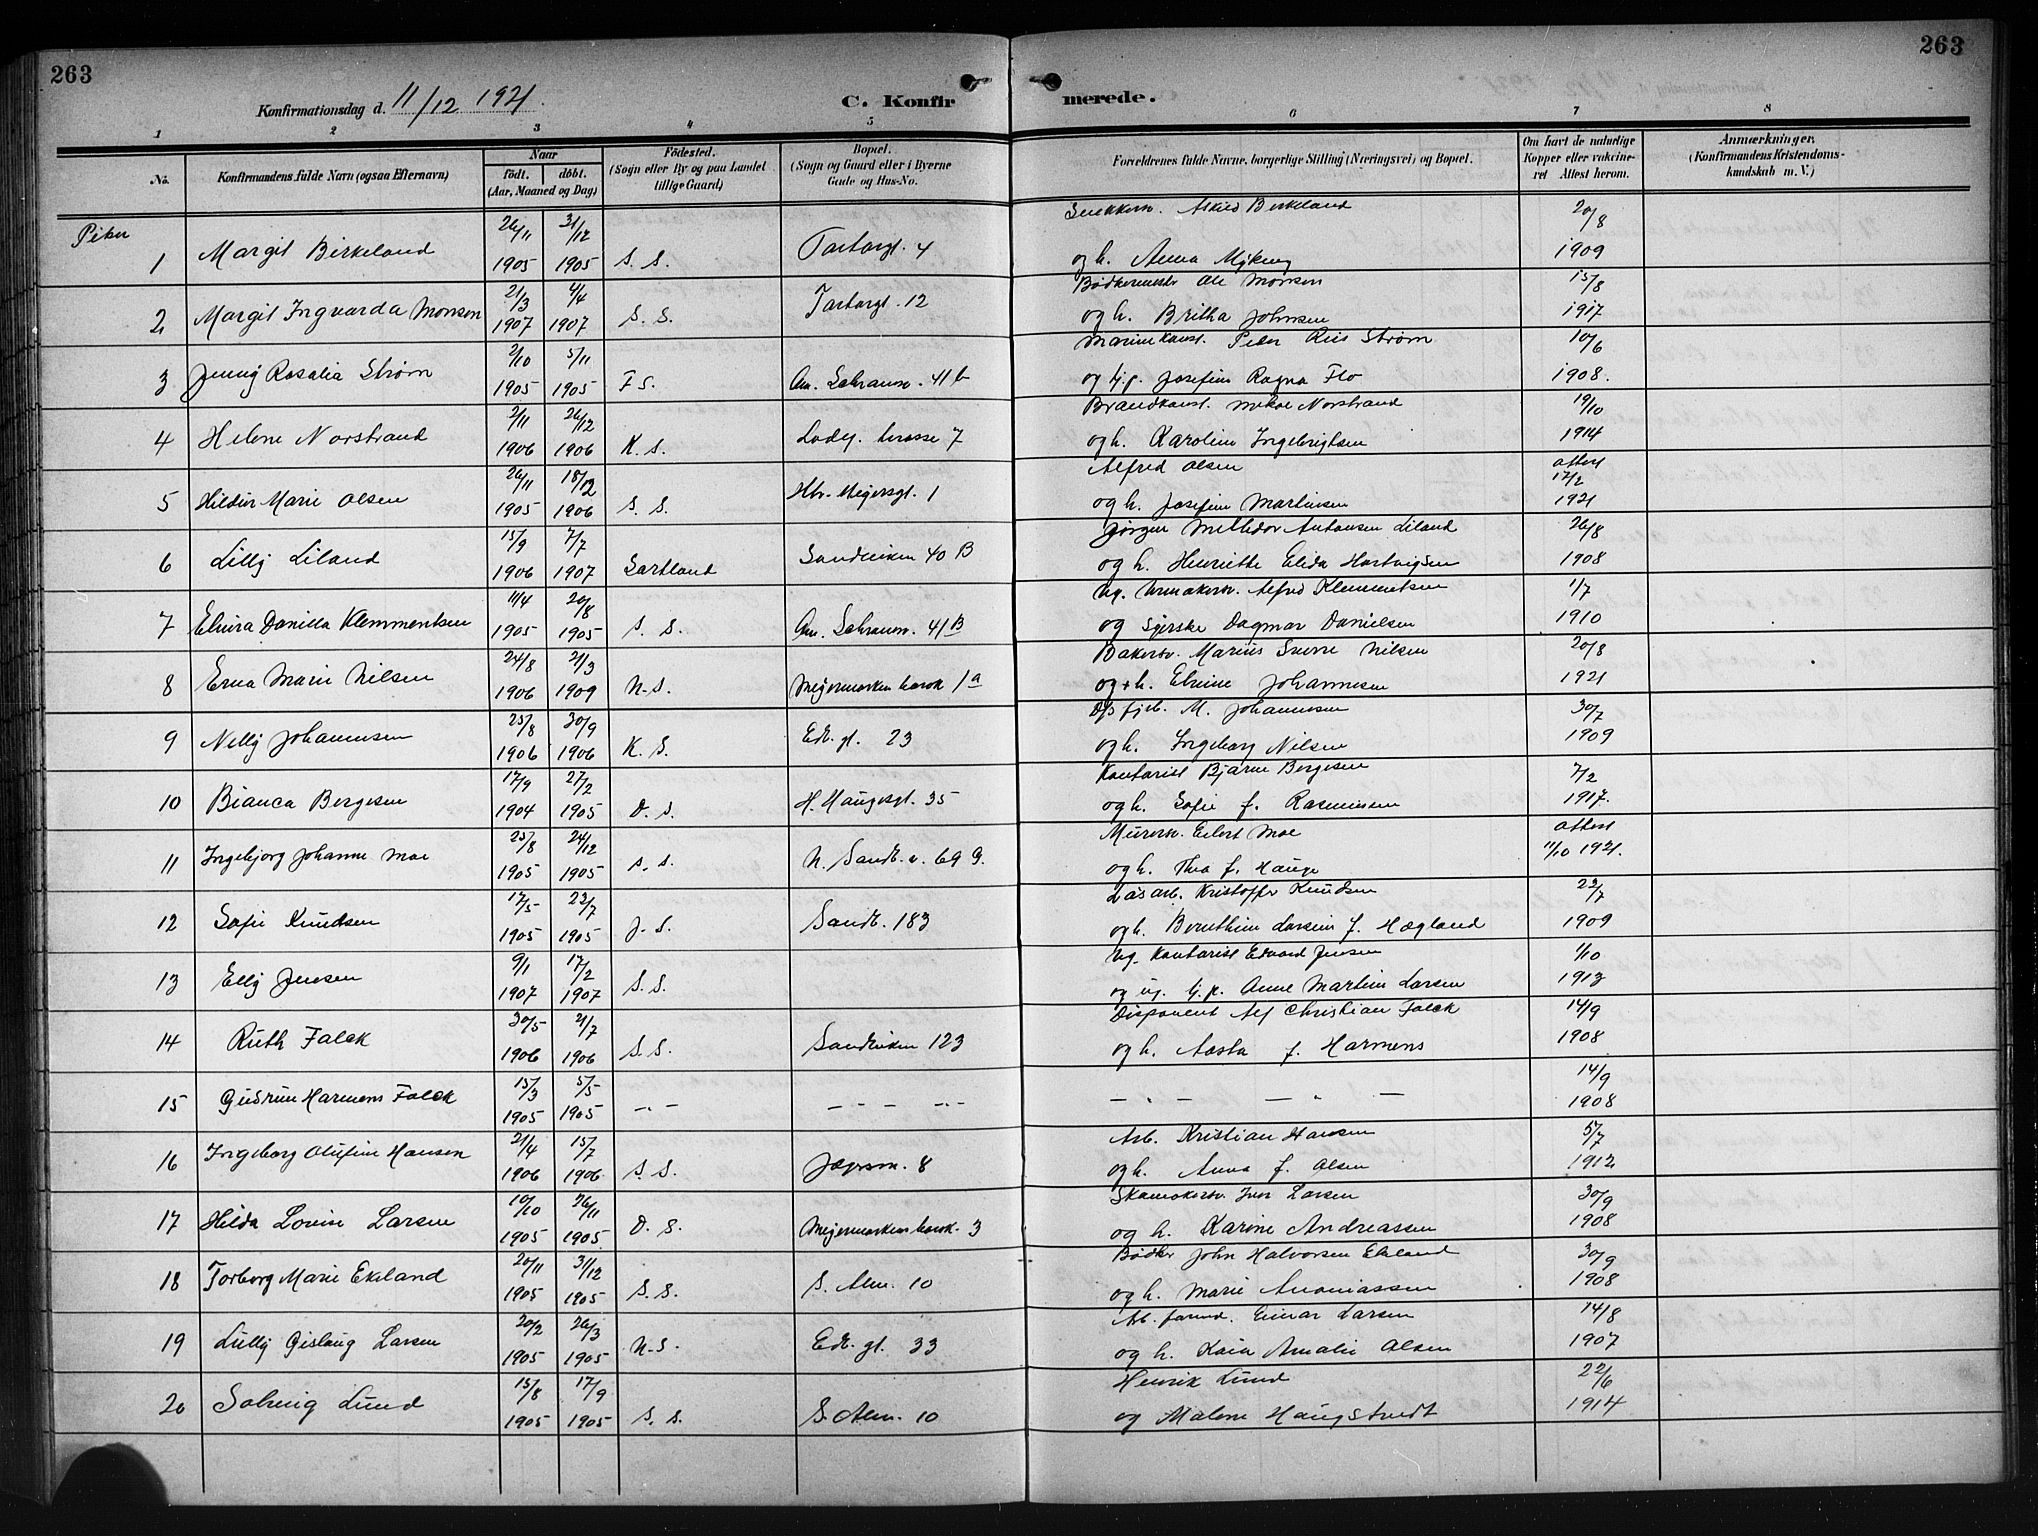 263
263
Konfirmationsdag d. 11/12 1921.
C. Konfirmerede.
1 2 3 4 5 6 7 8
No. Konfirmandens fulde Navn (ogsaa Efternavn) Naar født. døbt. (Aar, Maaned og Dag) Fødested. (Sogn eller By og paa Landet tillige Gaard) Bopæl. (Sogn og Gaard eller i Byerne Gade og Hus-No. Forældrenes fulde Navne, borgerlige Stilling (Næringsvei) og Bopæl. Om havt de naturlige Kopper eller vakcineret Attest herom. Anmærkninger. (Konfirmandens Kristendomskundskab m. V.)
Piker
1 Margit Birkeland 26/11 1905 31/12 1905 S. S. Tartargt. 4 Snekkersv. Askild Birkeland 20/8
og h. Anna Myking 1909
2 Margit Ingvarda Monsen 21/3 1907 4/4 1907 S. S. Tartargt. 12 Bødkermester Ole Monsen 15/8
og h. Britha Johnsen 1917
3 Jenny Rosalia Strøm 2/10 1905 5/11 1905 F S. Am. Schramsv. 41 b Marinekonst. Peder Riis Strøm 10/6
og hj. p. Josefine Ragna Flo 1908.
4 Helene Norstrand 2/11 1906 26/12 1906 K. S. Ladeg. terasse 7 Brandkonst. Mikal Norstrand 19/10
og h. Karoline Ingebrigtsen 1914
5 Hildur Marie Olsen 26/11 1905 18/12 1906 S. S. Hbr. Meyersgt. 1 Alfred Olsen attest 17/2
og h. Josefine Martinsen 1921
6 Lilly Liland 15/9 1906 7/7 1907 Sortland Sandviken 40 B Jørgen Methdor Antonsen Liland 26/8
og h. Henriette Elida Hartvigsen 1908
7 Elvira Danilla Klemmentsen 11/4 1905 20/8 1905 S. S. Am. Schramsv. 41 B Ug. Urmakersv. Alfred Klemmetsen 1/7
og Syerske Dagmar Danielsen 1910
8 Erna Marie Nilsen 24/8 1906 21/3 1909 N. S. Meyermarken barak 1a Bakersv. Marius Sverre Nilsen 20/8
og h. Elvine Johannesen 1921
9 Nelly Johannesen 25/8 1906 30/9 1906 K. S. Edv. gt. 23 D/s fyrb. M. Johannesen 30/7
og h. Ingeborg Nilsen 1909
10 Bianca Bergesen 17/9 1904 27/2 1905 D. S. H. Haugesgt. 35 Kontorist Bjarne Bergesen 7/2
og h. Sofie f. Rasmussen 1917.
11 Ingebjorg Johanne Moe 25/8 1905 24/12 1905 S. S. N. Sandv. v. 69 G. Murersv. Eilert Moe attest
og h. Thea f. Hauge 11/10 1921.
12 Sofie Knudsen 17/5 1905 23/7 1905 J. S. Sandv. 183 Løsarb. Kristoffer Knudsen 23/7
og h. Bernthine Larsine f. Hægland 1909
13 Elly Jensen 9/1 1907 17/2 1907 S. S. Ug. Kontorist Edvard Jensen 1/10
og ug. hj. p. Anne Martine Larsen 1913
14 Ruth Falck 30/5 1906 21/7 1906 S. S. Sandviken 123 Disponent Alf Christian Falck 14/9
og h. Aasta f. Harmens 1908
15 Gudrun Harmens Falck 15/3 1905 5/5 1905 – „ – – – – – „ – – „ – – „ – 14/9
1908
16 Ingeborg Olufine Hansen 21/4 1906 15/7 1906 S. S. Jægersm. 8 Arb. Kristian Hansen 5/7
og h. Anna f. Olsen 1912
17 Hilda Lovise Larsen 10/10 1905 26/11 1905 D. S. Meyermarken barak. 3 Skomakersv. Iver Larsen 30/9
og h. Karine Andreassen 1908
18 Torborg Marie Ekeland 20/11 1905 31/12 1905 S. S. S. Alm. 10 Bødker John Halvorsen Ekeland 30/9
og h. Marie Ananiassen 1908
19 Lully Gislaug Larsen 20/2 1905 26/3 1905 N. S. Edv. gt. 33 Arb. formd. Einar Larsen 14/8
og h. Kaia Amalie Olsen 1907
20 Solveig Lund 15/8 1905 17/9 1905 S. S. S. Alm. 10 Henrik Lund 22/6
og Malene Haugstvedt 1914